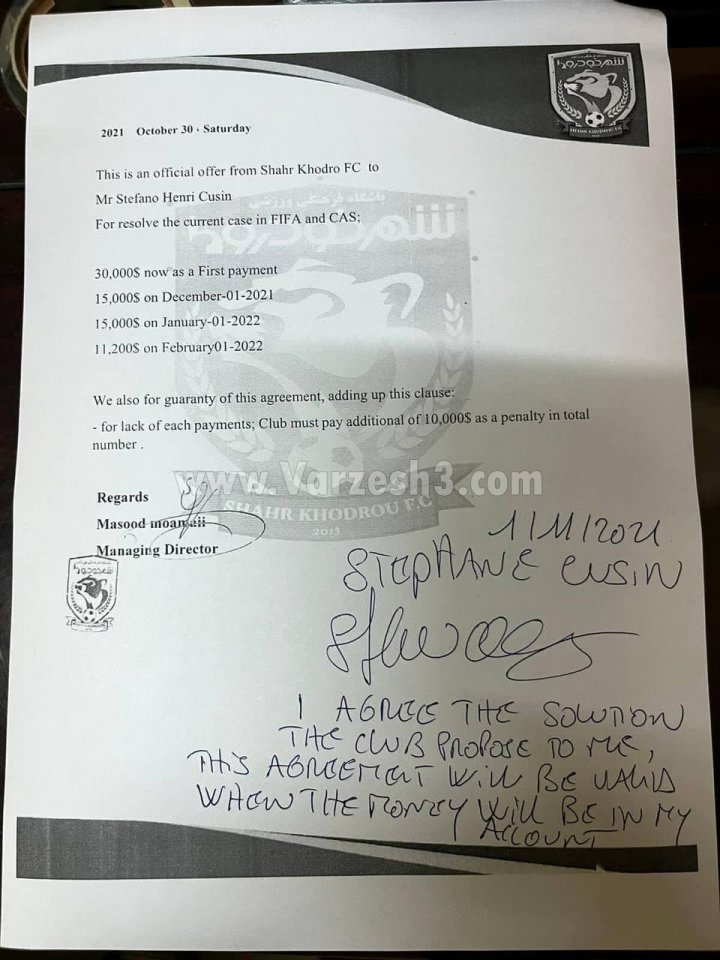 شهرخودرو
SHAHR KHODROU F.C
2021 October 30 - Saturday
This is an official offer from Shahr Khodro FC to
Mr Stefano Henri Cusin
For resolve the current case in FIFA and CAS;
باشگاه فرهنگی ورزشی
شهرخودرو
30,000$ now as a First payment
15,000$ on December-01-2021
15,000$ on January-01-2022
11,200$ on February01-2022
We also for guaranty of this agreement, adding up this clause:
- for lack of each payments; Club must pay additional of 10,000$ as a penalty in total
number .
www.Varzesh3.com
SHAHR KHODROU F.C
2013
Regards
Masood
Managing Director
1/11/2021
STEPHANE CUSIN
I AGREE THE SOLUTION
THE CLUB PROPOSE TO ME,
THIS AGREEMENT WILL BE VALID
WHEN THE MONEY WILL BE IN MY
ACCOUNT